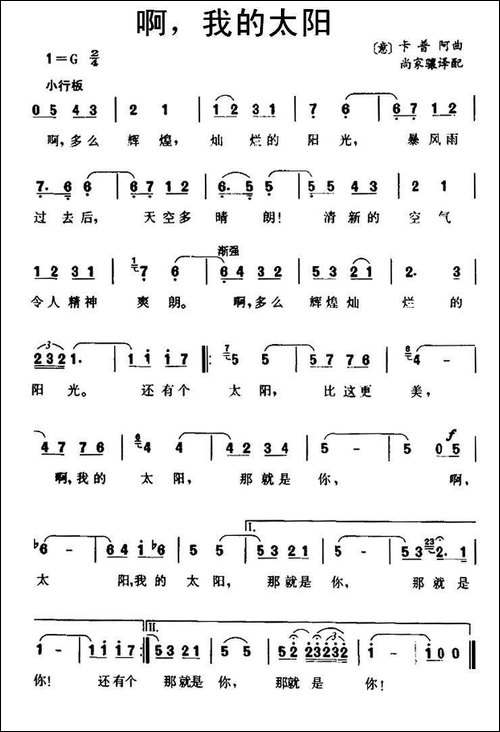 啊，我的太阳
1=G 2/4
〔意〕卡普阿曲
尚家骧译配
小行板
0 5 4 3 | 2 1 | 1 2 3 1 | 7 6 | 6 7 1 2 |
啊,多么 辉煌, 灿烂的 阳光, 暴风雨
7. 6 6 | 6 7 1 2 | 6. 5 5 | 5 5 4 3 | 2 1 |
过去后, 天空多 晴朗! 清新的 空气
渐强
1 2 3 1 | 7 6 | 6 4 3 2 | 5 3 2 1 | 2. 3 |
令人精神 爽朗。 啊,多么 辉煌灿 烂的
3
2 3 2 1. | 1 1 1 7 |: 5 5 | 5 7 7 6 | 4 - |
阳光。 还有个 太阳, 比这更 美,
4 7 7 6 | 4 4 | 4 2 3 4 | 5 - | 5 0 5 |
f
啊,我的 太阳, 那就是 你, 啊,
1.
♭6 - | 6 4 1 ♭6 | 5 5 | 5 3 2 1 | 5 - | 5 3 2. 1 |
太 阳,我的 太阳, 那就是 你, 那就是
II.
1 - | 1 1 1 7 :| 5 3 2 1 | 5 5 | 5 2 3 2 3 2 3 2 | 1 - | 1 0 0 |
你! 还有个 那就是 你, 那就 是 你!